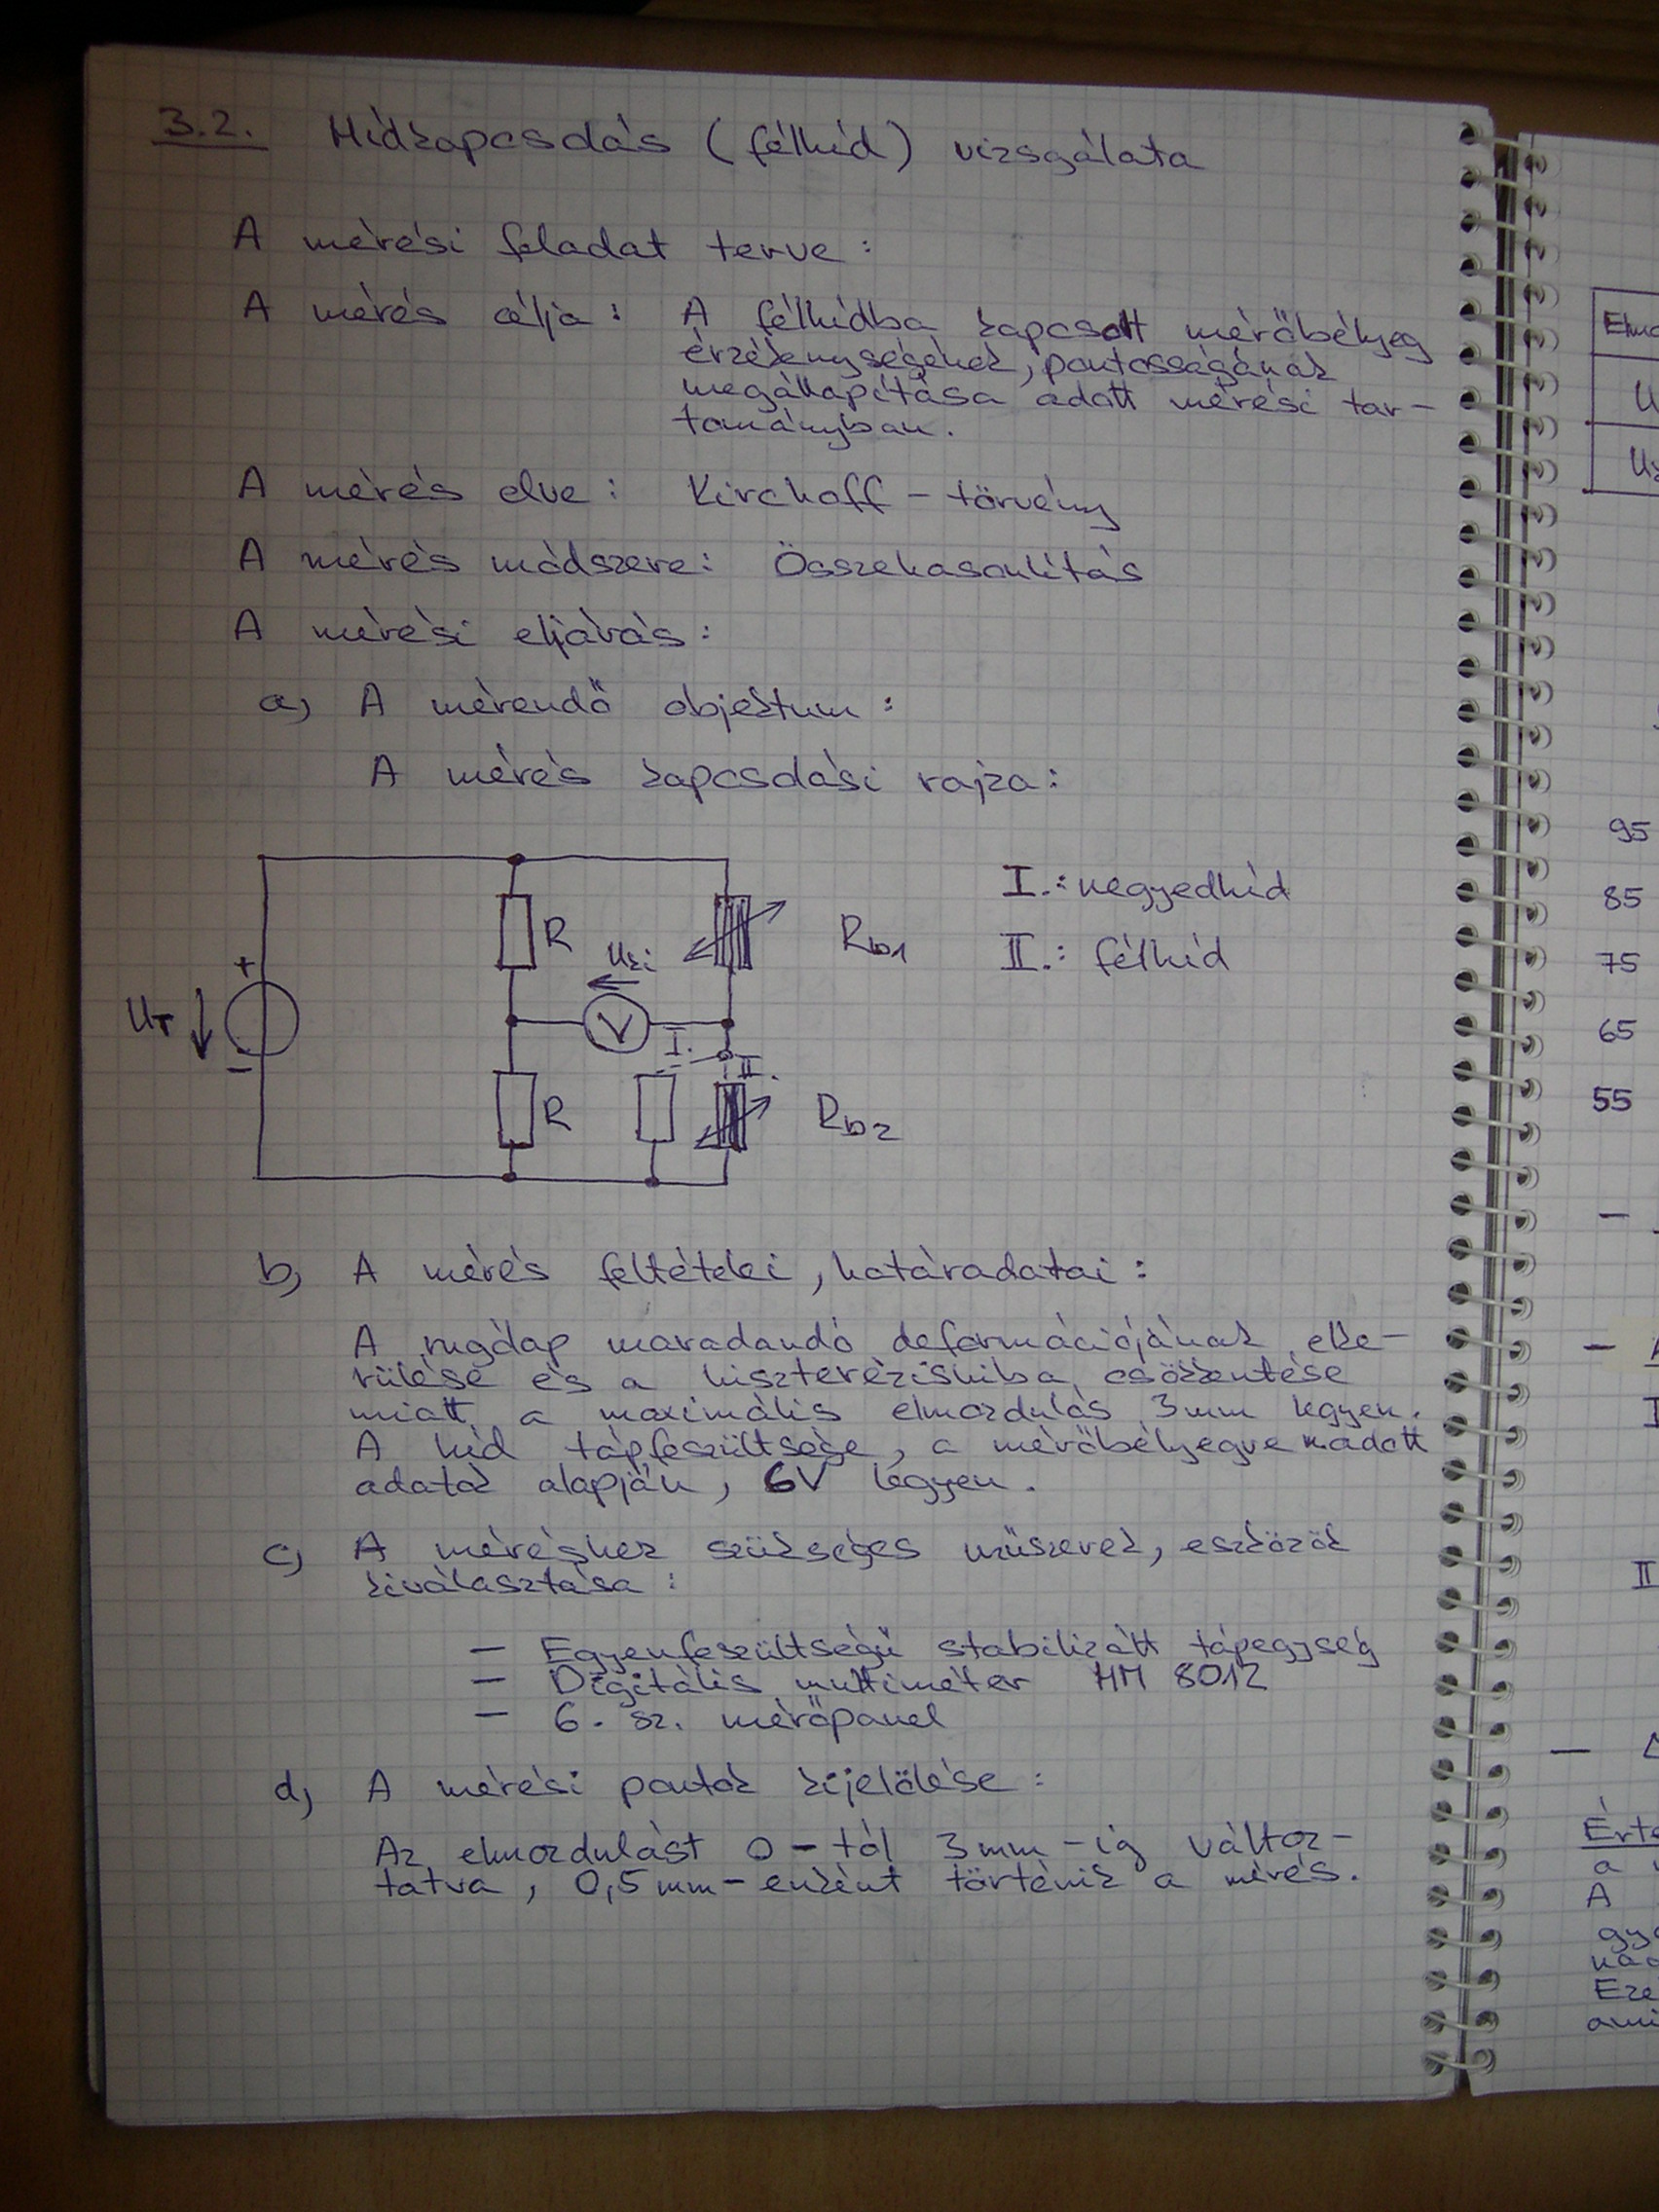 3.2. Hídkapcsolás (félhíd) vizsgálata
A mérési feladat terve:
A mérés célja: A félhídba kapcsolt mérőbélyeg
érzékenységének, pontosságának
megállapítása adott mérési tar-
tományban.
A mérés elve: Kirchoff - törvény
A mérés módszere: Összehasonlítás
A mérési eljárás:
a, A mérendő objektum:
A mérés kapcsolási rajza:
I.: negyedhíd
II.: félhíd
R
Uki
Rb1
+
UT
V
I.
II.
-
R
Rb2
b, A mérés feltételei, határadatai:
A rugólap maradandó deformációjának elke-
rülése és a hiszterézishiba csökkentése
miatt a maximális elmozdulás 3mm legyen.
A híd tápfeszültsége, a mérőbélyegre adott
adatok alapján, 6V legyen.
c, A méréshez szükséges műszerek, eszközök
kiválasztása:
- Egyenfeszültségű stabilizált tápegység
- Digitális multiméter HM 8012
- 6. sz. mérőpanel
d, A mérési pontok kijelölése:
Az elmozdulást 0-tól 3mm-ig változ-
tatva, 0,5mm-enként történik a mérés.
95
85
75
65
55
II
A